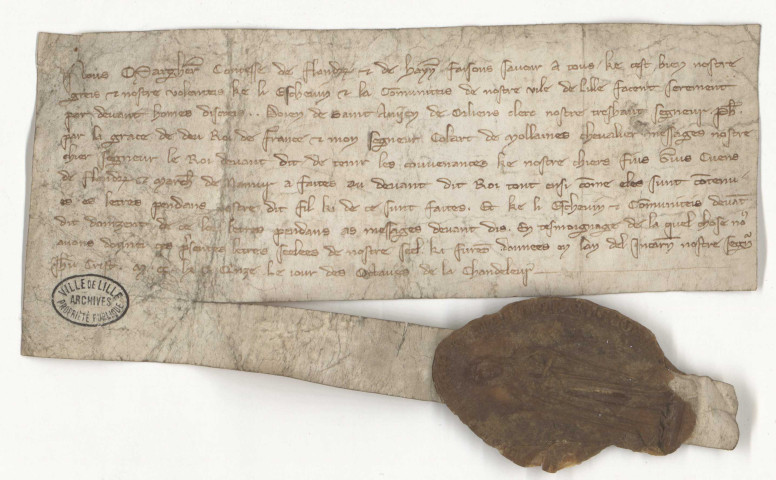 Nous Margherete Contesse de Flandr & de Hayn faisons savoir a tous ke cest bien nostre
greis & nostre volenteis ke li Eschevin & la Comuniteis de nostre vile de Lille facent serement
par devant homes discreis .. Doien de Saint de Orliens clerc nostre treshaut segneur Ph
par la grace de deu Roi de France & mon segneur Colart de Mollaines chevalier messages nostre
chier segneur le Roi devant dit de tenir les convenances ke nostre chiers fius Guis Cuens
de Flandr & march de Namur a faites au devant dit Roi tout ensi come eles sunt contenu
es es letres pendans nostre dit fil ki de ce sunt faites. Et ke li Eschevin & Comuniteis devat
dit doingent de ce lor letres pendans as messages devant dis. En tesmoignage de la quel chose no
avons donneit ces presens letres seelees de nostre seel ki furent donnees en lan del Incarn nostre segn
Jhu Crist M CC le jour des Octaves de la Chandeleur
VILLE DE LILLE
ARCHIVES
PROPRIÉTÉ PUBLIQUE